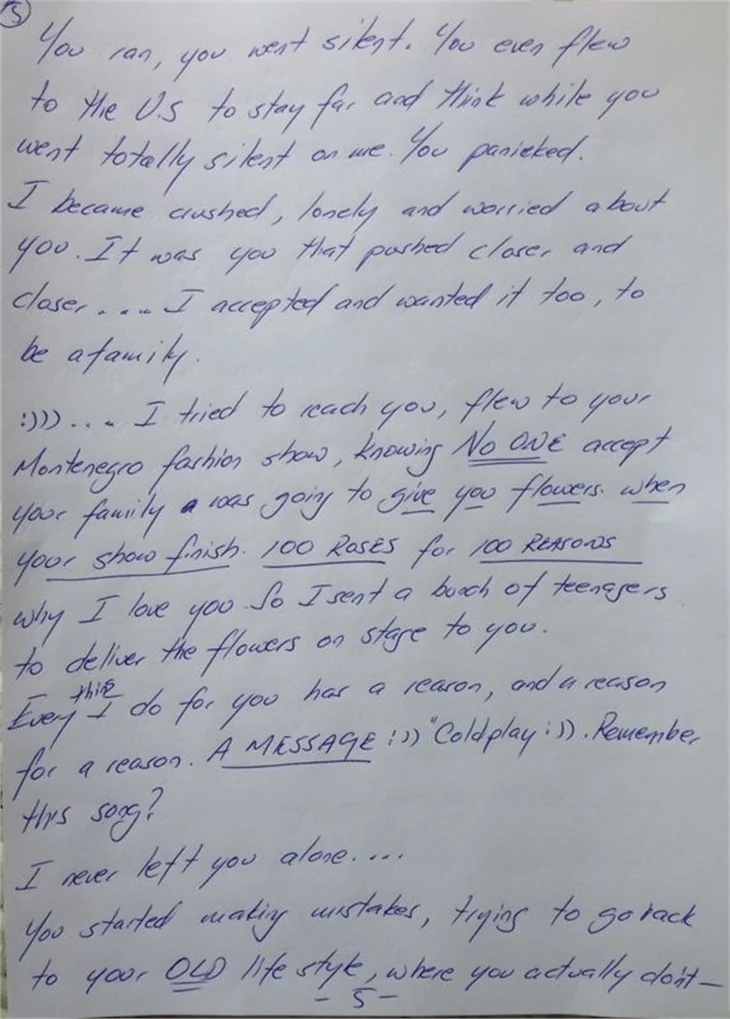 5
You ran, you went silent. You even flew
to the U.S to stay far and think while you
went totally silent on me. You panicked.
I became crushed, lonely and worried about
you. It was you that pushed closer and
closer.... I accepted and wanted it too, to
be a family.
:))).... I tried to reach you, flew to your
Montenegro fashion show, knowing NO ONE accept
your family was going to give you flowers when
your show finish. 100 ROSES for 100 REASONS
why I love you. So I sent a bunch of teenagers
to deliver the flowers on stage to you.
Every thing I do for you has a reason, and a reason
for a reason. A MESSAGE :)) "Coldplay :)). Remember
this song?
I never left you alone....
You started making mistakes, trying to go back
to your OLD life style, where you actually don't —
- 5 -